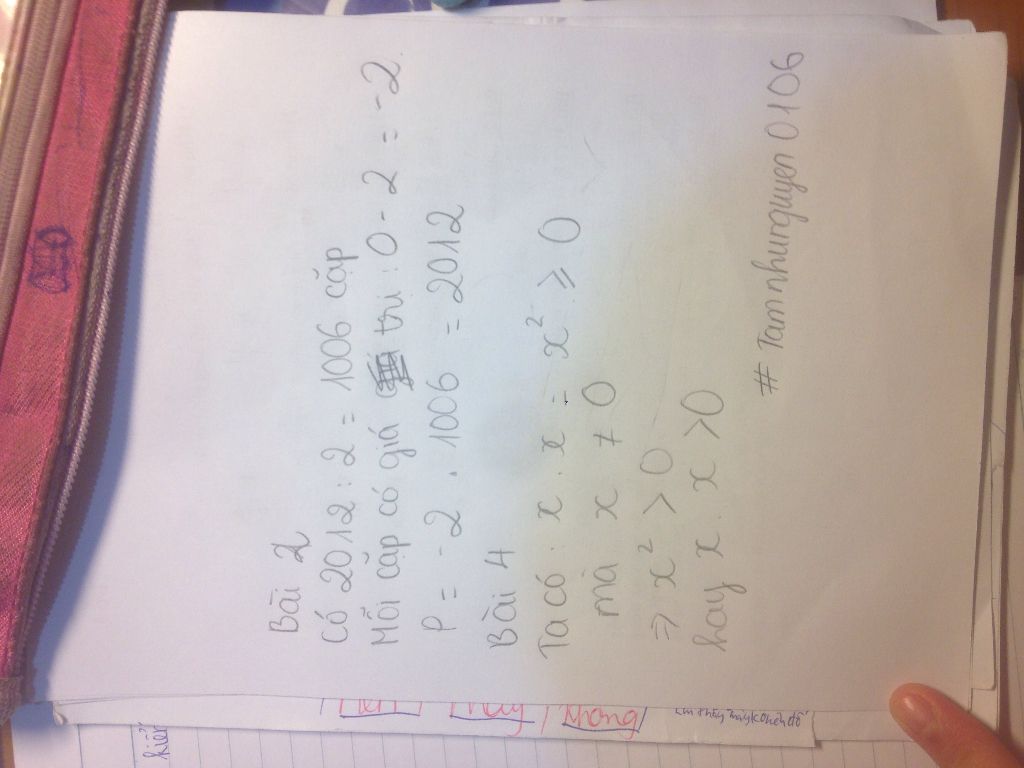 Bài 2
Có 2012 : 2 = 1006 cặp
Mỗi cặp có giá trị : 0 - 2 = -2.
P = -2 . 1006 = 2012
Bài 4
Ta có : x . x = x² ≥ 0
mà x ≠ 0
=> x² > 0
hay x . x > 0
# Tamnhunguyen 0106
không